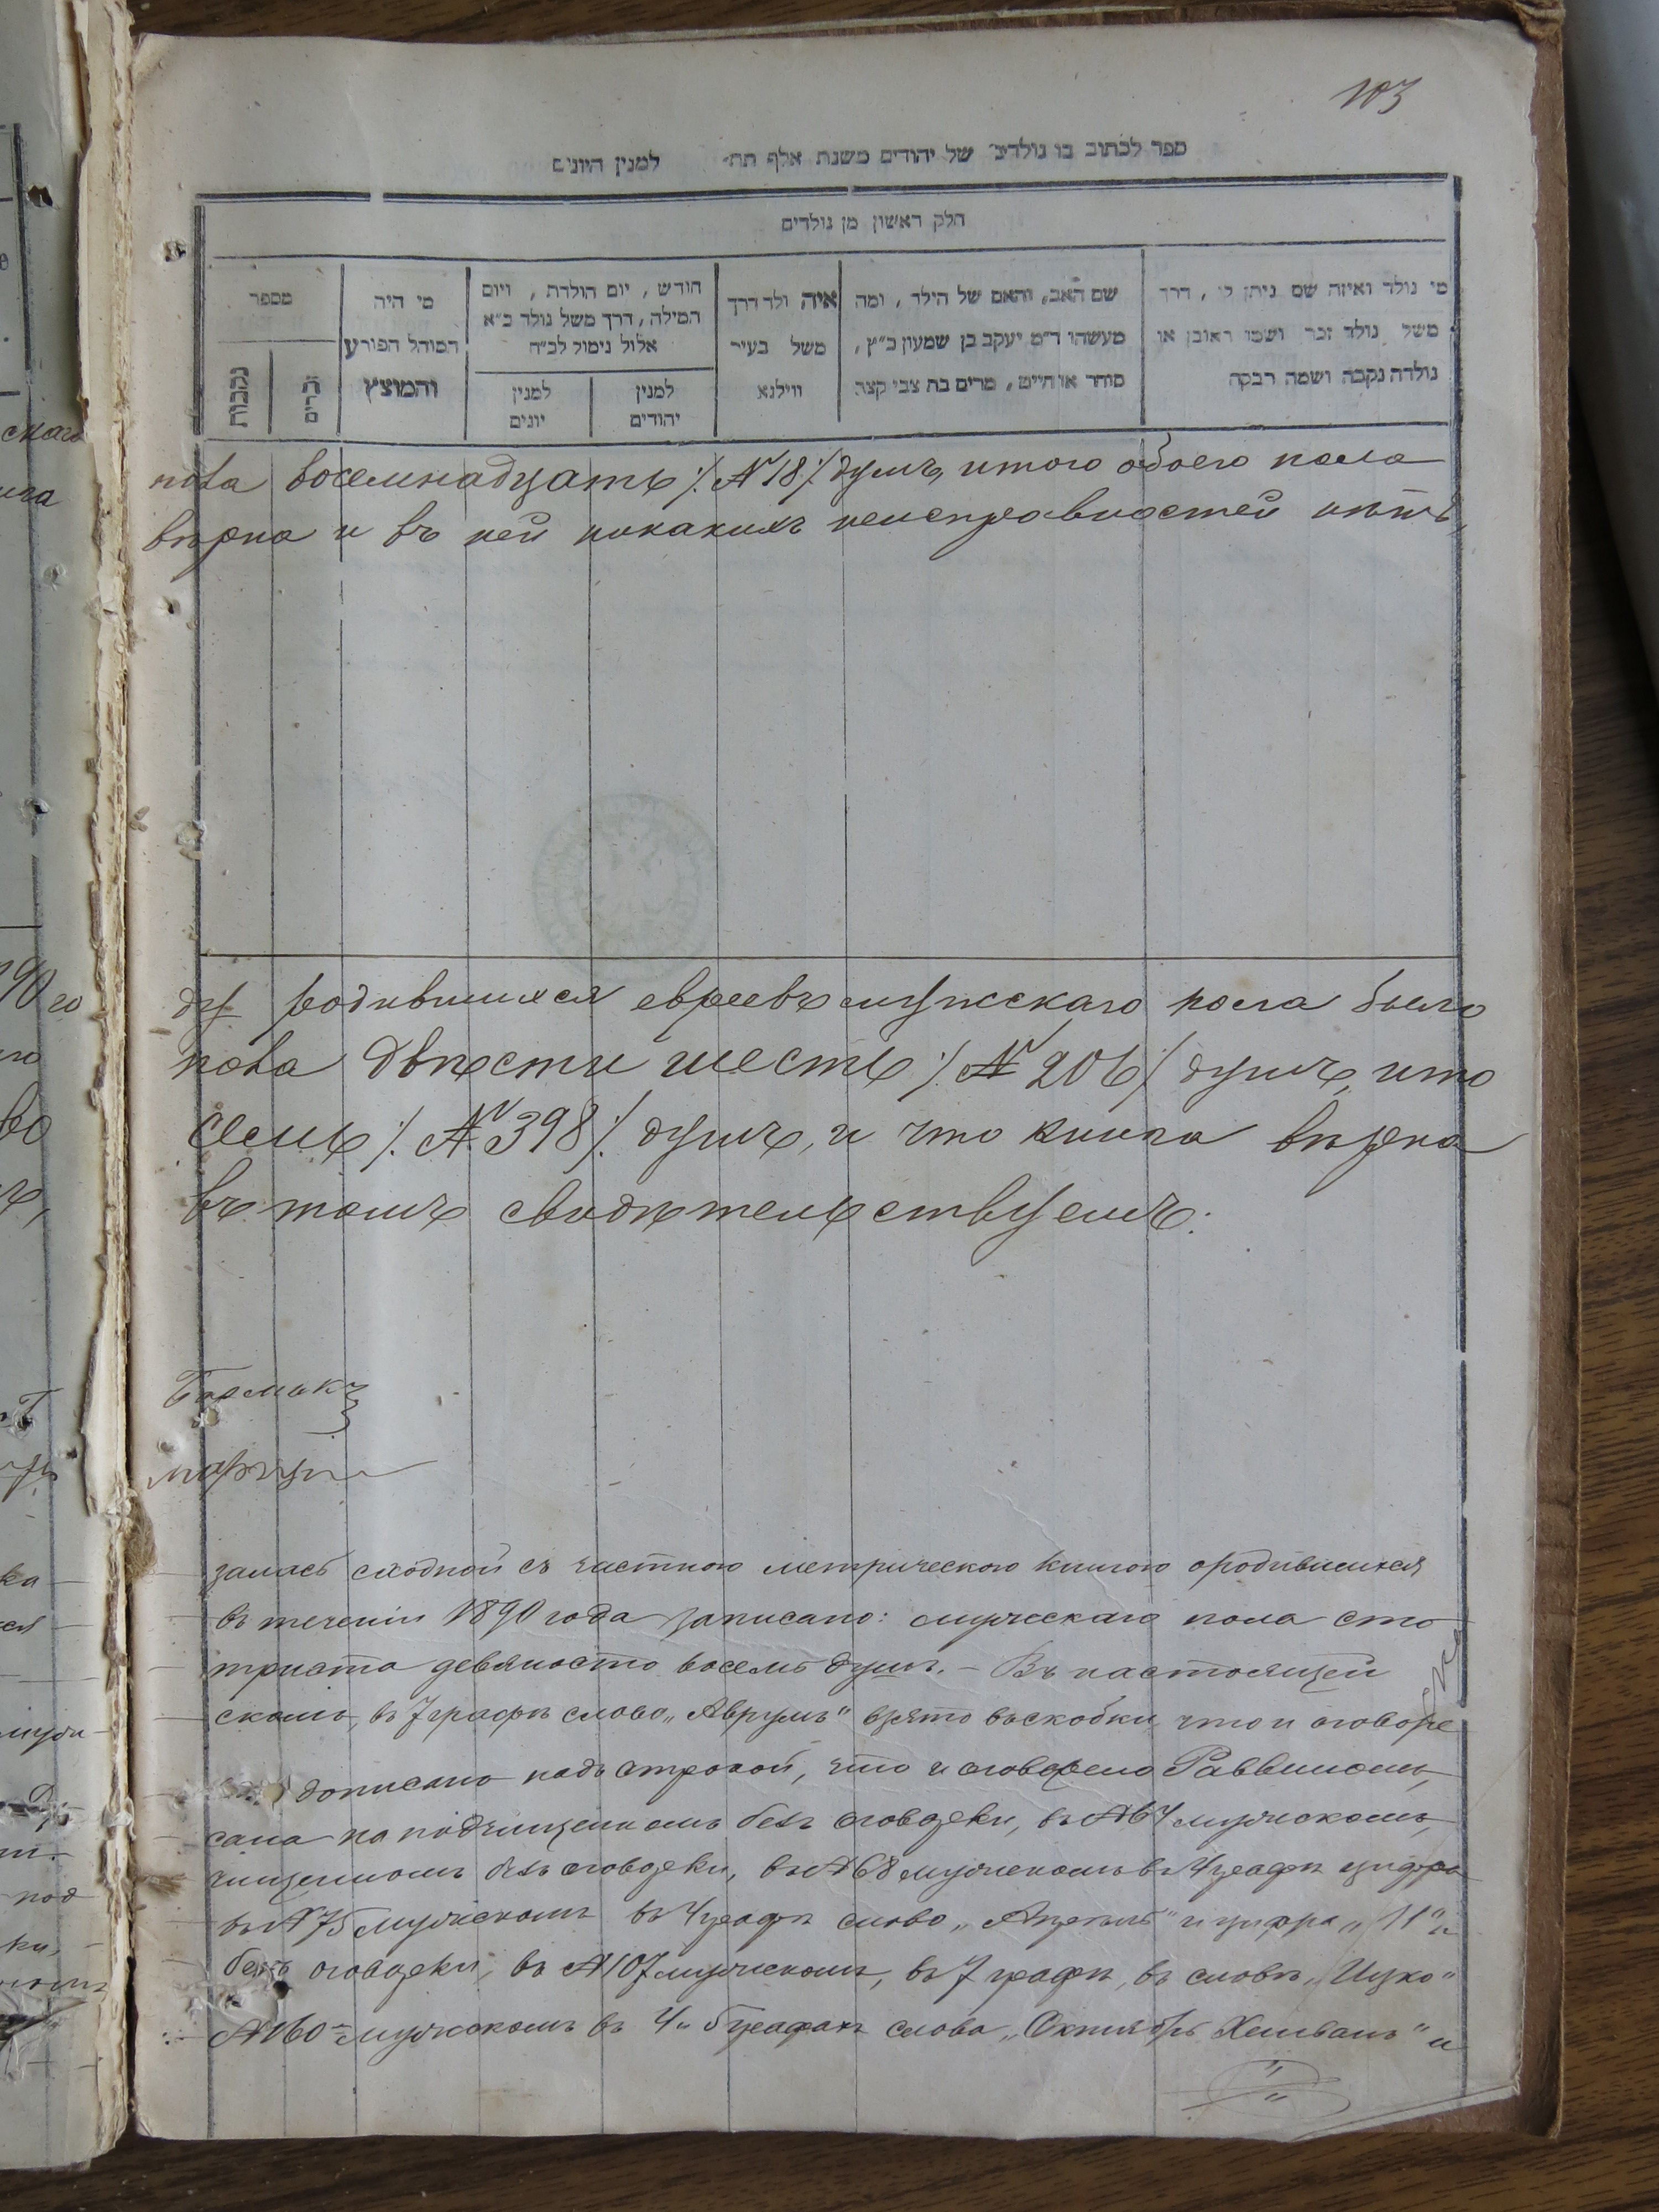 103
ספר לכתוב בו נולדים של יהודים משנת אלף תת״ למנין היונים
חלק ראשון מן נולדים
מי נולד ואיזה שם ניתן לו, דרך
משל נולד זכר ושמו ראובן או
נולדה נקבה ושמה רבקה
שם האב, והאם של הילד, ומה
מעשהו ד״מ יעקב בן שמעון כ״ץ,
סוחר או חייט, מרים בת צבי קצב
איה ולד דרך
משל בעיר
ווילנא
חודש, יום הולדת, ויום
המילה, דרך משל נולד כ״א
אלול נימול לכ״ח
למנין
יהודים
למנין
יונים
מי היה
המוהל הפורע
והמוצץ
מספר
זכרים
נקבות
пола восемнадцать ∕. №18 ∕. душъ, итого обоего пола
вѣрна и въ ней никакихъ неисправностей нѣтъ,
ду родившихся евреевъ мужскаго пола было
пола двѣсти шесть ∕. № 206 ∕. душъ, ито
семь ∕. № 398 ∕. душъ, и что книга вѣрна
въ томъ свидѣтельствуемъ:
залась сходной съ частною метрическою книгою о родившихся
въ теченіи 1890 года записано: мужскаго пола сто
триста девяносто восемь душъ. – Въ настоящей
скомъ, въ 7 графѣ слово „Аврумъ" взято въ скобки, что и оговоре
дописано надъ строкой, что и оговорено Раввиномъ,
сана по подчищенномъ безъ оговорки, въ №64 мужскомъ,
чищенномъ безъ оговорки, въ №68 мужскомъ въ 4 графѣ цифра
въ №75 мужскомъ въ 4 графѣ слово „Апрель" и цифра „11" и
безъ оговорки, въ №107 мужскомъ, въ 7 графѣ, въ словѣ „Ицко"
№160 – мужскомъ въ 4 и 5 графахъ слова „Октябрь Хешванъ" и